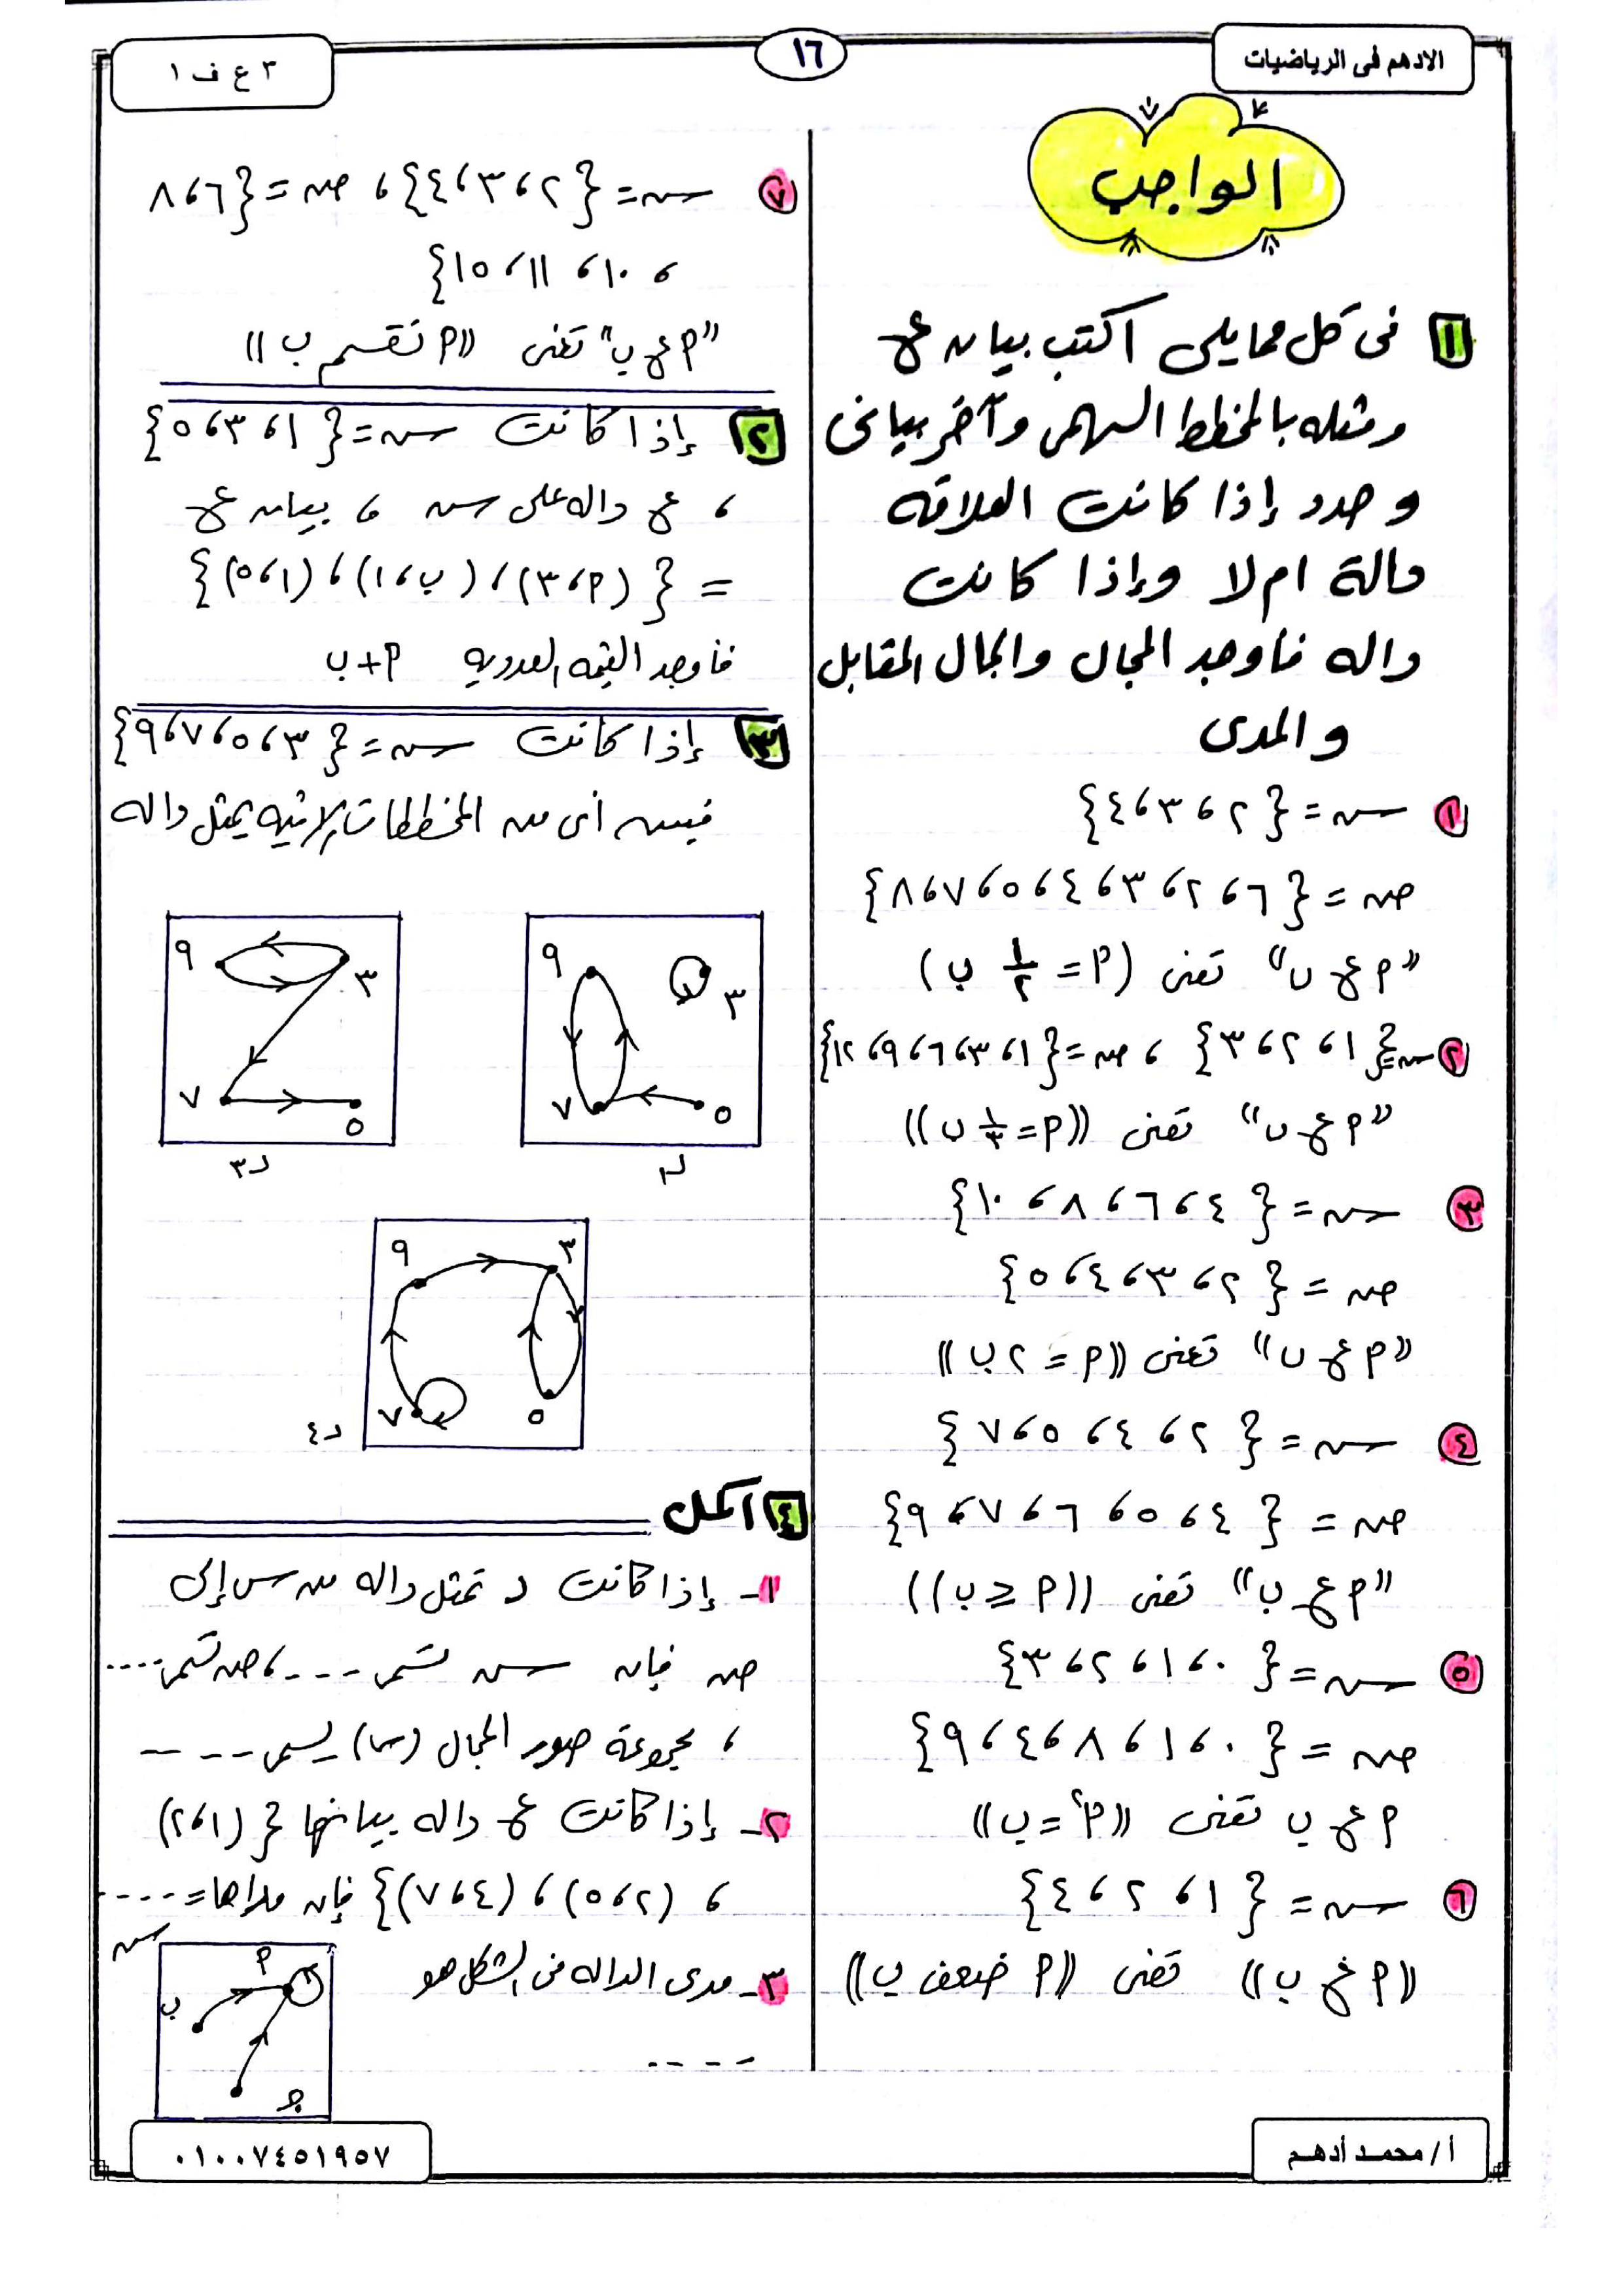 الادهم فى الرياضيات
١٦
٣ ع ف ١
الواجب
١ فى كل مما يلى اكتب بيان ع
ومثله بالمخطط السهمى وآخر بيانى
وحدد إذا كانت العلاقه
دالة ام لا وإذا كانت
داله فأوجد المجال والمجال المقابل
والمدى
١ س = {٢ ، ٣ ، ٤}
ص = {٦ ، ٢ ، ٣ ، ٤ ، ٥ ، ٧ ، ٨}
"م ع ب" تعنى (م = ١/٢ ب)
٢ س = {١ ، ٢ ، ٣} ، ص = {١ ، ٣ ، ٦ ، ٩ ، ١٢}
"م ع ب" تعنى ((م = ١/٣ ب))
٣ س = {٤ ، ٦ ، ٨ ، ١٠}
ص = {٢ ، ٣ ، ٤ ، ٥}
"م ع ب" تعنى ((م = ٢ ب))
٤ س = {٢ ، ٤ ، ٥ ، ٧}
ص = {٤ ، ٥ ، ٦ ، ٧ ، ٩}
"م ع ب" تعنى ((م ≥ ب))
٥ س = {٠ ، ١ ، ٢ ، ٣}
ص = {٠ ، ١ ، ٨ ، ٤ ، ٩}
م ع ب تعنى ((م² = ب))
٦ س = {١ ، ٢ ، ٤}
((م ع ب)) تعنى ((م ضعف ب))
٧ س = {٢ ، ٣ ، ٤} ، ص = {٦ ، ٨
، ١٠ ، ١١ ، ١٥}
"م ع ب" تعنى ((م تقسم ب))
٢ إذا كانت س = {١ ، ٣ ، ٥}
، ع داله على س ، بيان ع
= {(م ، ٣) ، (ب ، ١) ، (١ ، ٥)}
فأوجد القيمه العدديه م + ب
٣ إذا كانت س = {٣ ، ٥ ، ٧ ، ٩}
فبين أى من المخططات الاتيه يمثل داله
٩ ٣
٧ ٥
د٣
٩ ٣
٧ ٥
٩ ٣
٧ ٥
د٤
٤ اكمل
١- إذا كانت د تمثل داله من س إلى
ص فإن س تسمى ---- ، ص تسمى ----
، مجموعة صور المجال (س) يسمى ----
٢- إذا كانت ع داله بيانها {(١ ، ٢)
، (٢ ، ٥) ، (٤ ، ٧)} فإن مداها = ----
٣- مدى الداله فى الشكل هو
----
س
م
ب
ج
أ / محمد أدهم
٠١٠٠٧٤٥١٩٥٧